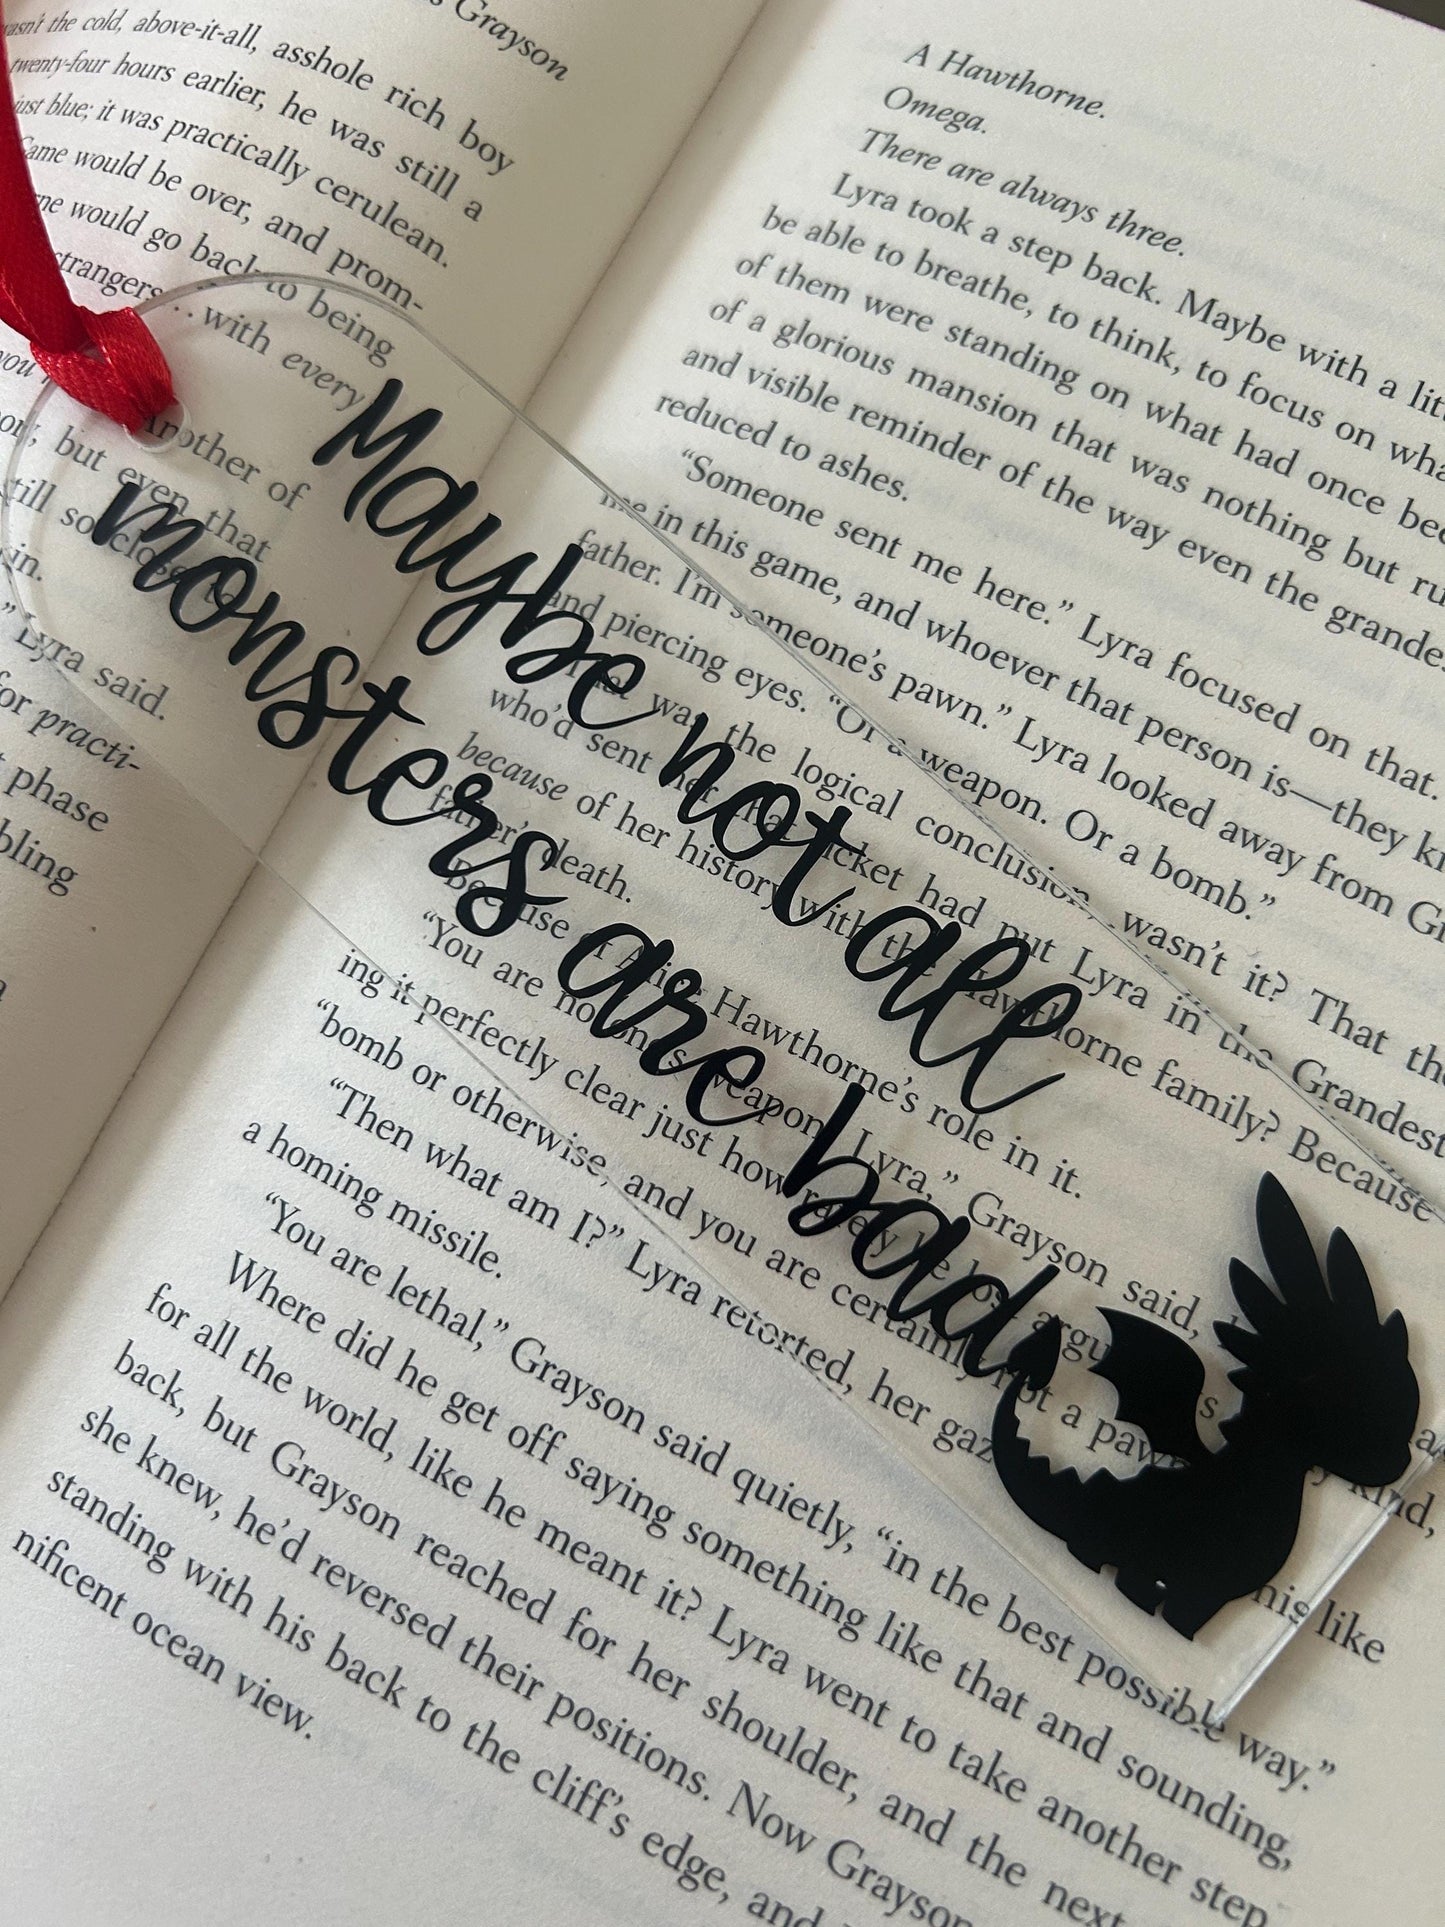 Grayson
wasn't the cold, above-it-all, asshole rich boy
twenty-four hours earlier, he was still a
just blue; it was practically cerulean.
Game would be over, and prom-
would go back to being
strangers . . . with every
you
Another of
but even that
still so close to
in.
” Lyra said.
for practi-
phase
bling
A Hawthorne.
Omega.
There are always three.
Lyra took a step back. Maybe with a lit
be able to breathe, to think, to focus on wha
of them were standing on what had once bee
of a glorious mansion that was nothing but ru
and visible reminder of the way even the grande
reduced to ashes.
“Someone sent me here.” Lyra focused on that.
me in this game, and whoever that person is—they kn
father. I'm someone's pawn.” Lyra looked away from Gr
and piercing eyes. “Or a weapon. Or a bomb.”
That was the logical conclusion, wasn't it? That the
who'd sent her that ticket had put Lyra in the Grandest
because of her history with the Hawthorne family? Because
father's death.
Because of Alice Hawthorne's role in it.
“You are no one's weapon, Lyra,” Grayson said,
ing it perfectly clear just how rarely he lost argu
“bomb or otherwise, and you are certainly not a pawn kind,
“Then what am I?” Lyra retorted, her gaz his like
a homing missile.
“You are lethal,” Grayson said quietly, “in the best possible way.”
Where did he get off saying something like that and sounding,
for all the world, like he meant it? Lyra went to take another step
back, but Grayson reached for her shoulder, and the next
she knew, he'd reversed their positions. Now Grayson
standing with his back to the cliff's edge, and
nificent ocean view.
Maybe not all
monsters are bad